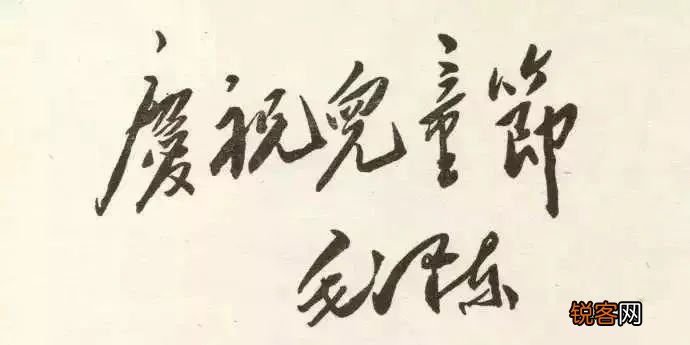 慶祝兒童節
毛泽东
锐客网